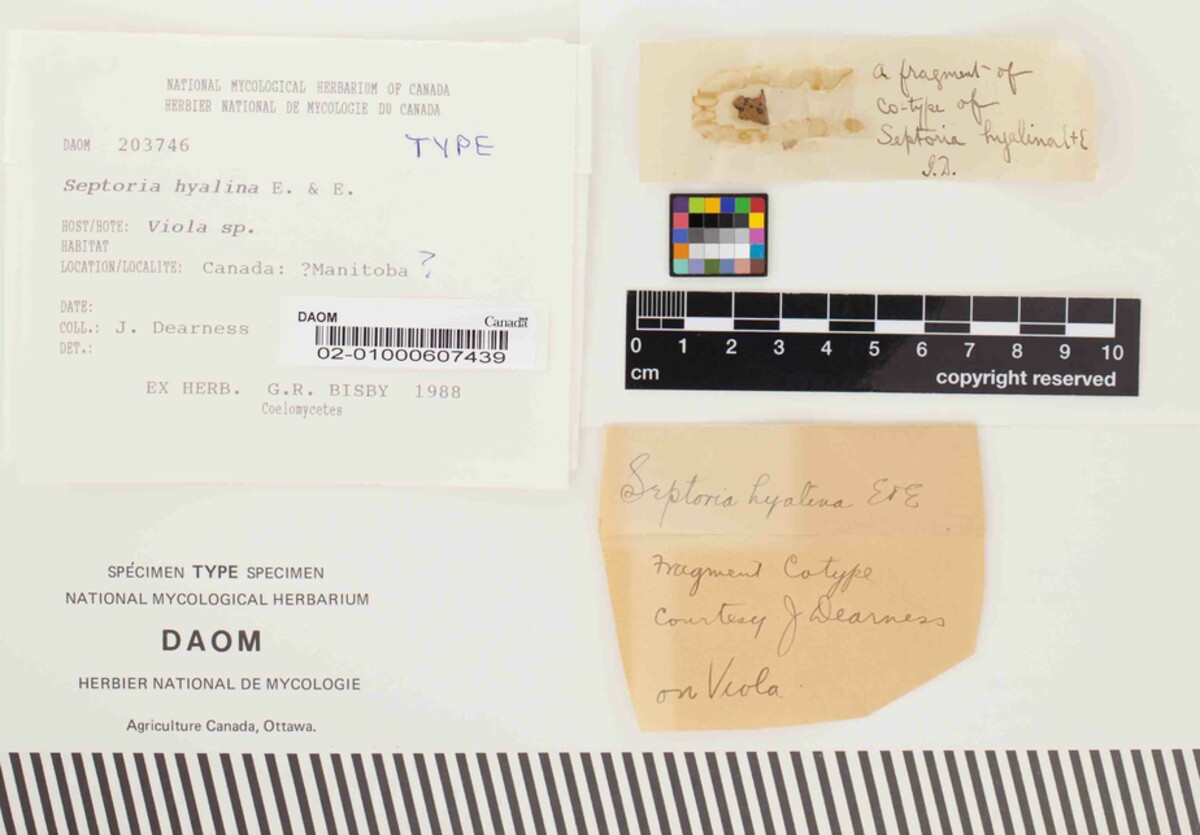 NATIONAL MYCOLOGICAL HERBARIUM OF CANADA
HERBIER NATIONAL DE MYCOLOGIE DU CANADA
DAOM 203746
TYPE
Septoria hyalina E. & E.
HOST/HOTE: Viola sp.
HABITAT
LOCATION/LOCALITE: Canada: ?Manitoba ?
DATE:
COLL.: J. Dearness
DET.:
DAOM
Canada
02-01000607439
EX HERB. G.R. BISBY 1988
Coelomycetes
SPÉCIMEN TYPE SPECIMEN
NATIONAL MYCOLOGICAL HERBARIUM
DAOM
HERBIER NATIONAL DE MYCOLOGIE
Agriculture Canada, Ottawa.
a fragment of
co-type of
Septoria hyalina E+E
J.D.
0 1 2 3 4 5 6 7 8 9 10
cm
copyright reserved
Septoria hyalina E&E
Fragment Cotype
courtesy J Dearness
on Viola